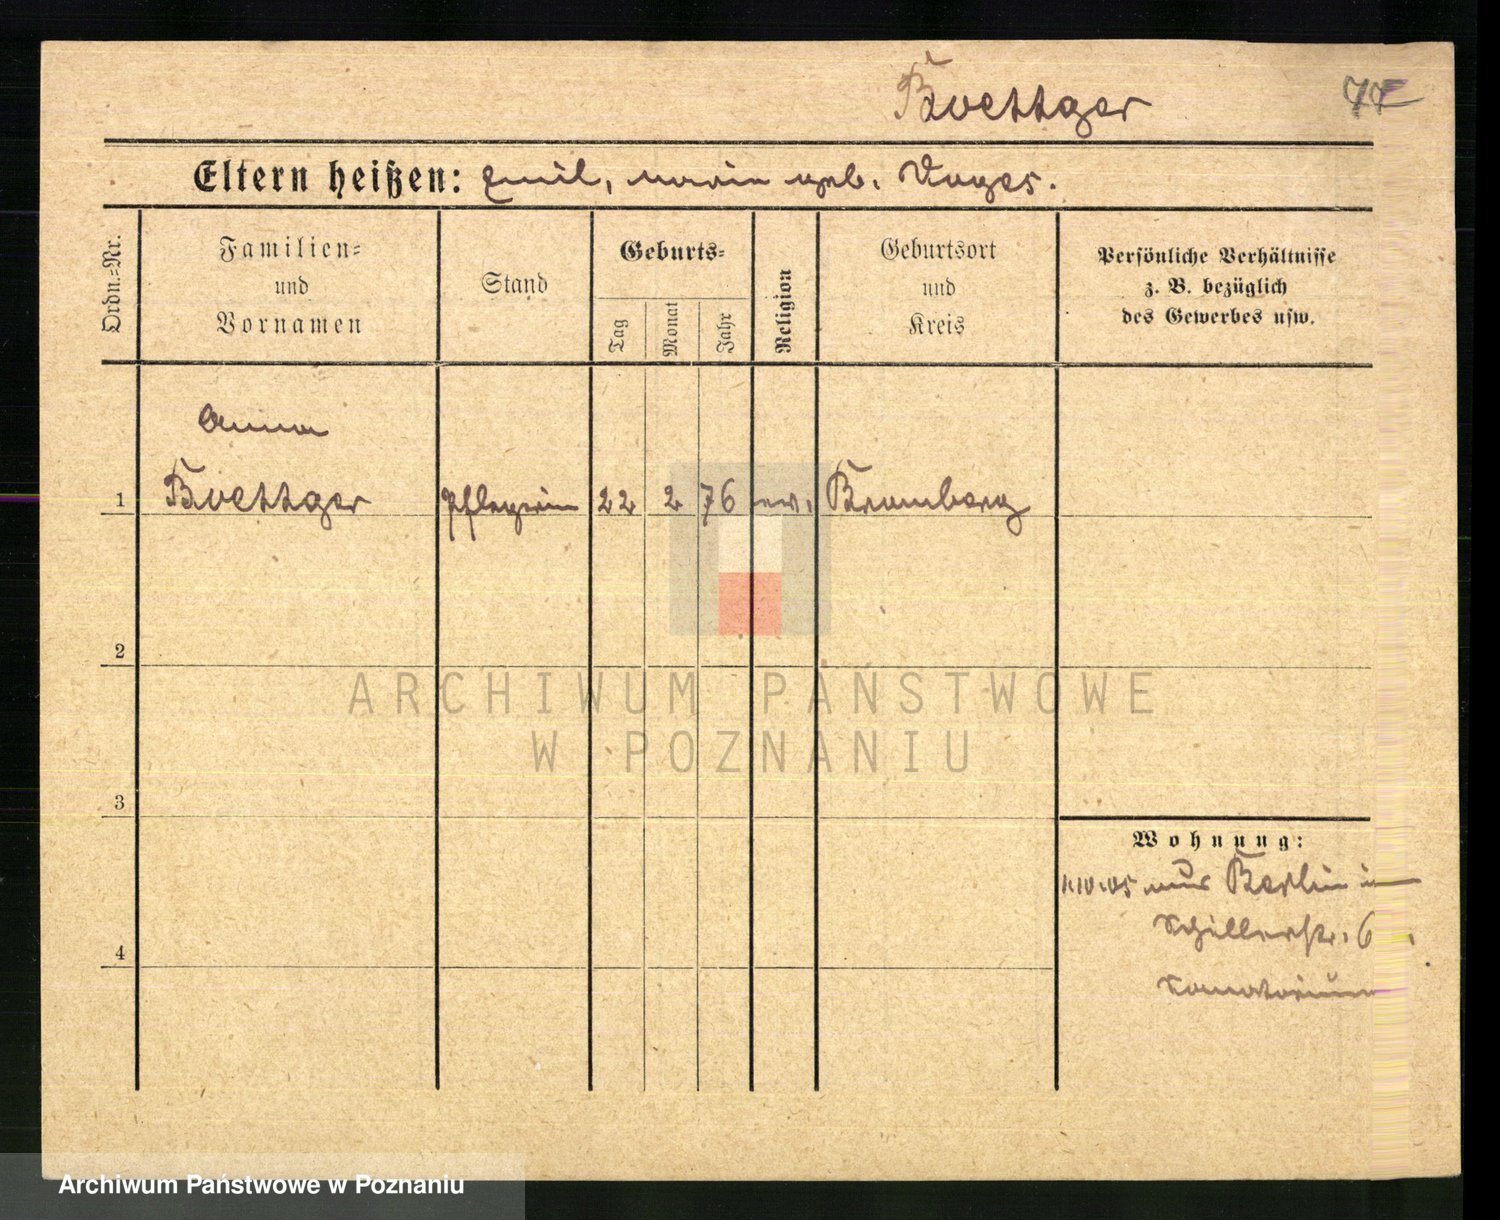 Boettger
77
Eltern heißen: Emil, Marie geb. Voges.
Ordn.-Nr.
Familien-
und
Vornamen
Stand
Geburts-
Tag
Monat
Jahr
Religion
Geburtsort
und
Kreis
Persönliche Verhältnisse
z. B. bezüglich
des Gewerbes usw.
Anna
1 Boettger Pflegerin 22 2 76 ev. Bromberg
2
3
4
Wohnung:
1.10.05 aus Berlin in
Schillerstr. 6
Sanatorium
ARCHIWUM PAŃSTWOWE
W POZNANIU
Archiwum Państwowe w Poznaniu